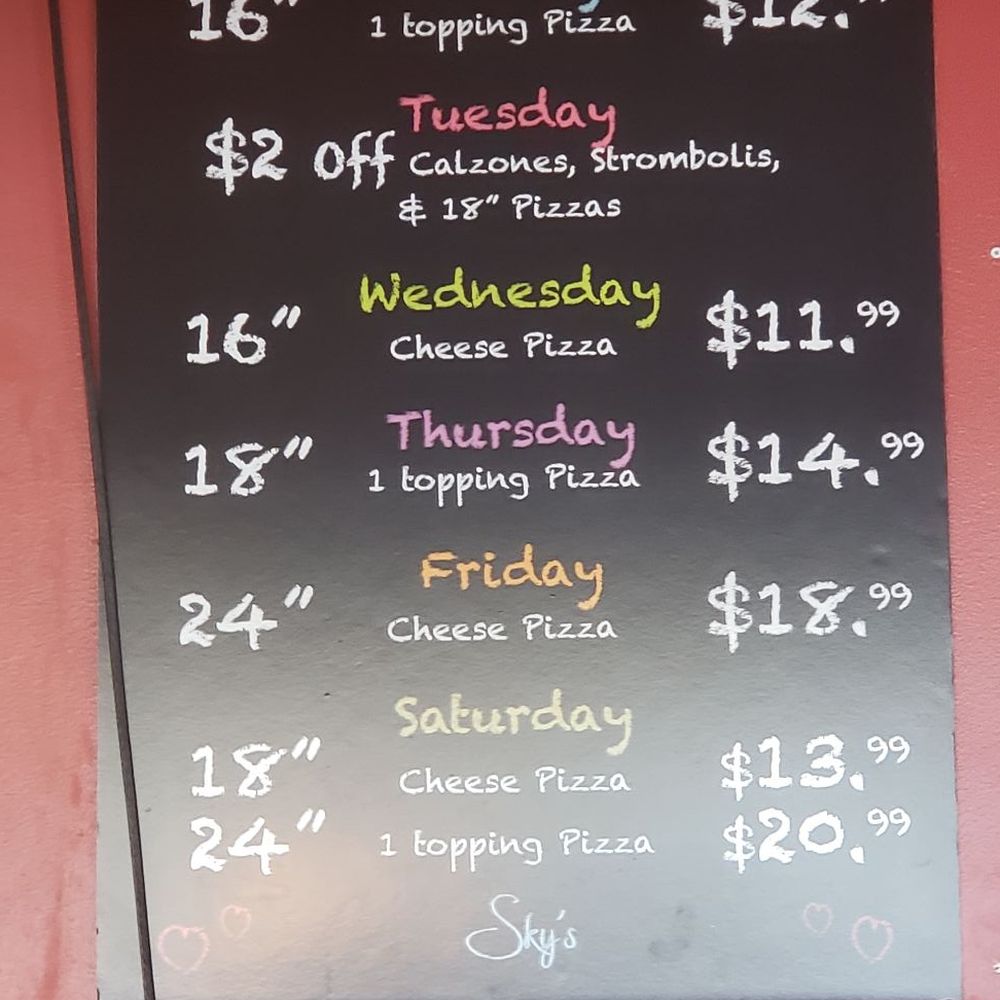 16" 1 topping Pizza $12.
Tuesday
$2 Off Calzones, Strombolis,
& 18" Pizzas
Wednesday
16" Cheese Pizza $11.99
Thursday
18" 1 topping Pizza $14.99
Friday
24" Cheese Pizza $18.99
Saturday
18" Cheese Pizza $13.99
24" 1 topping Pizza $20.99
Sky's